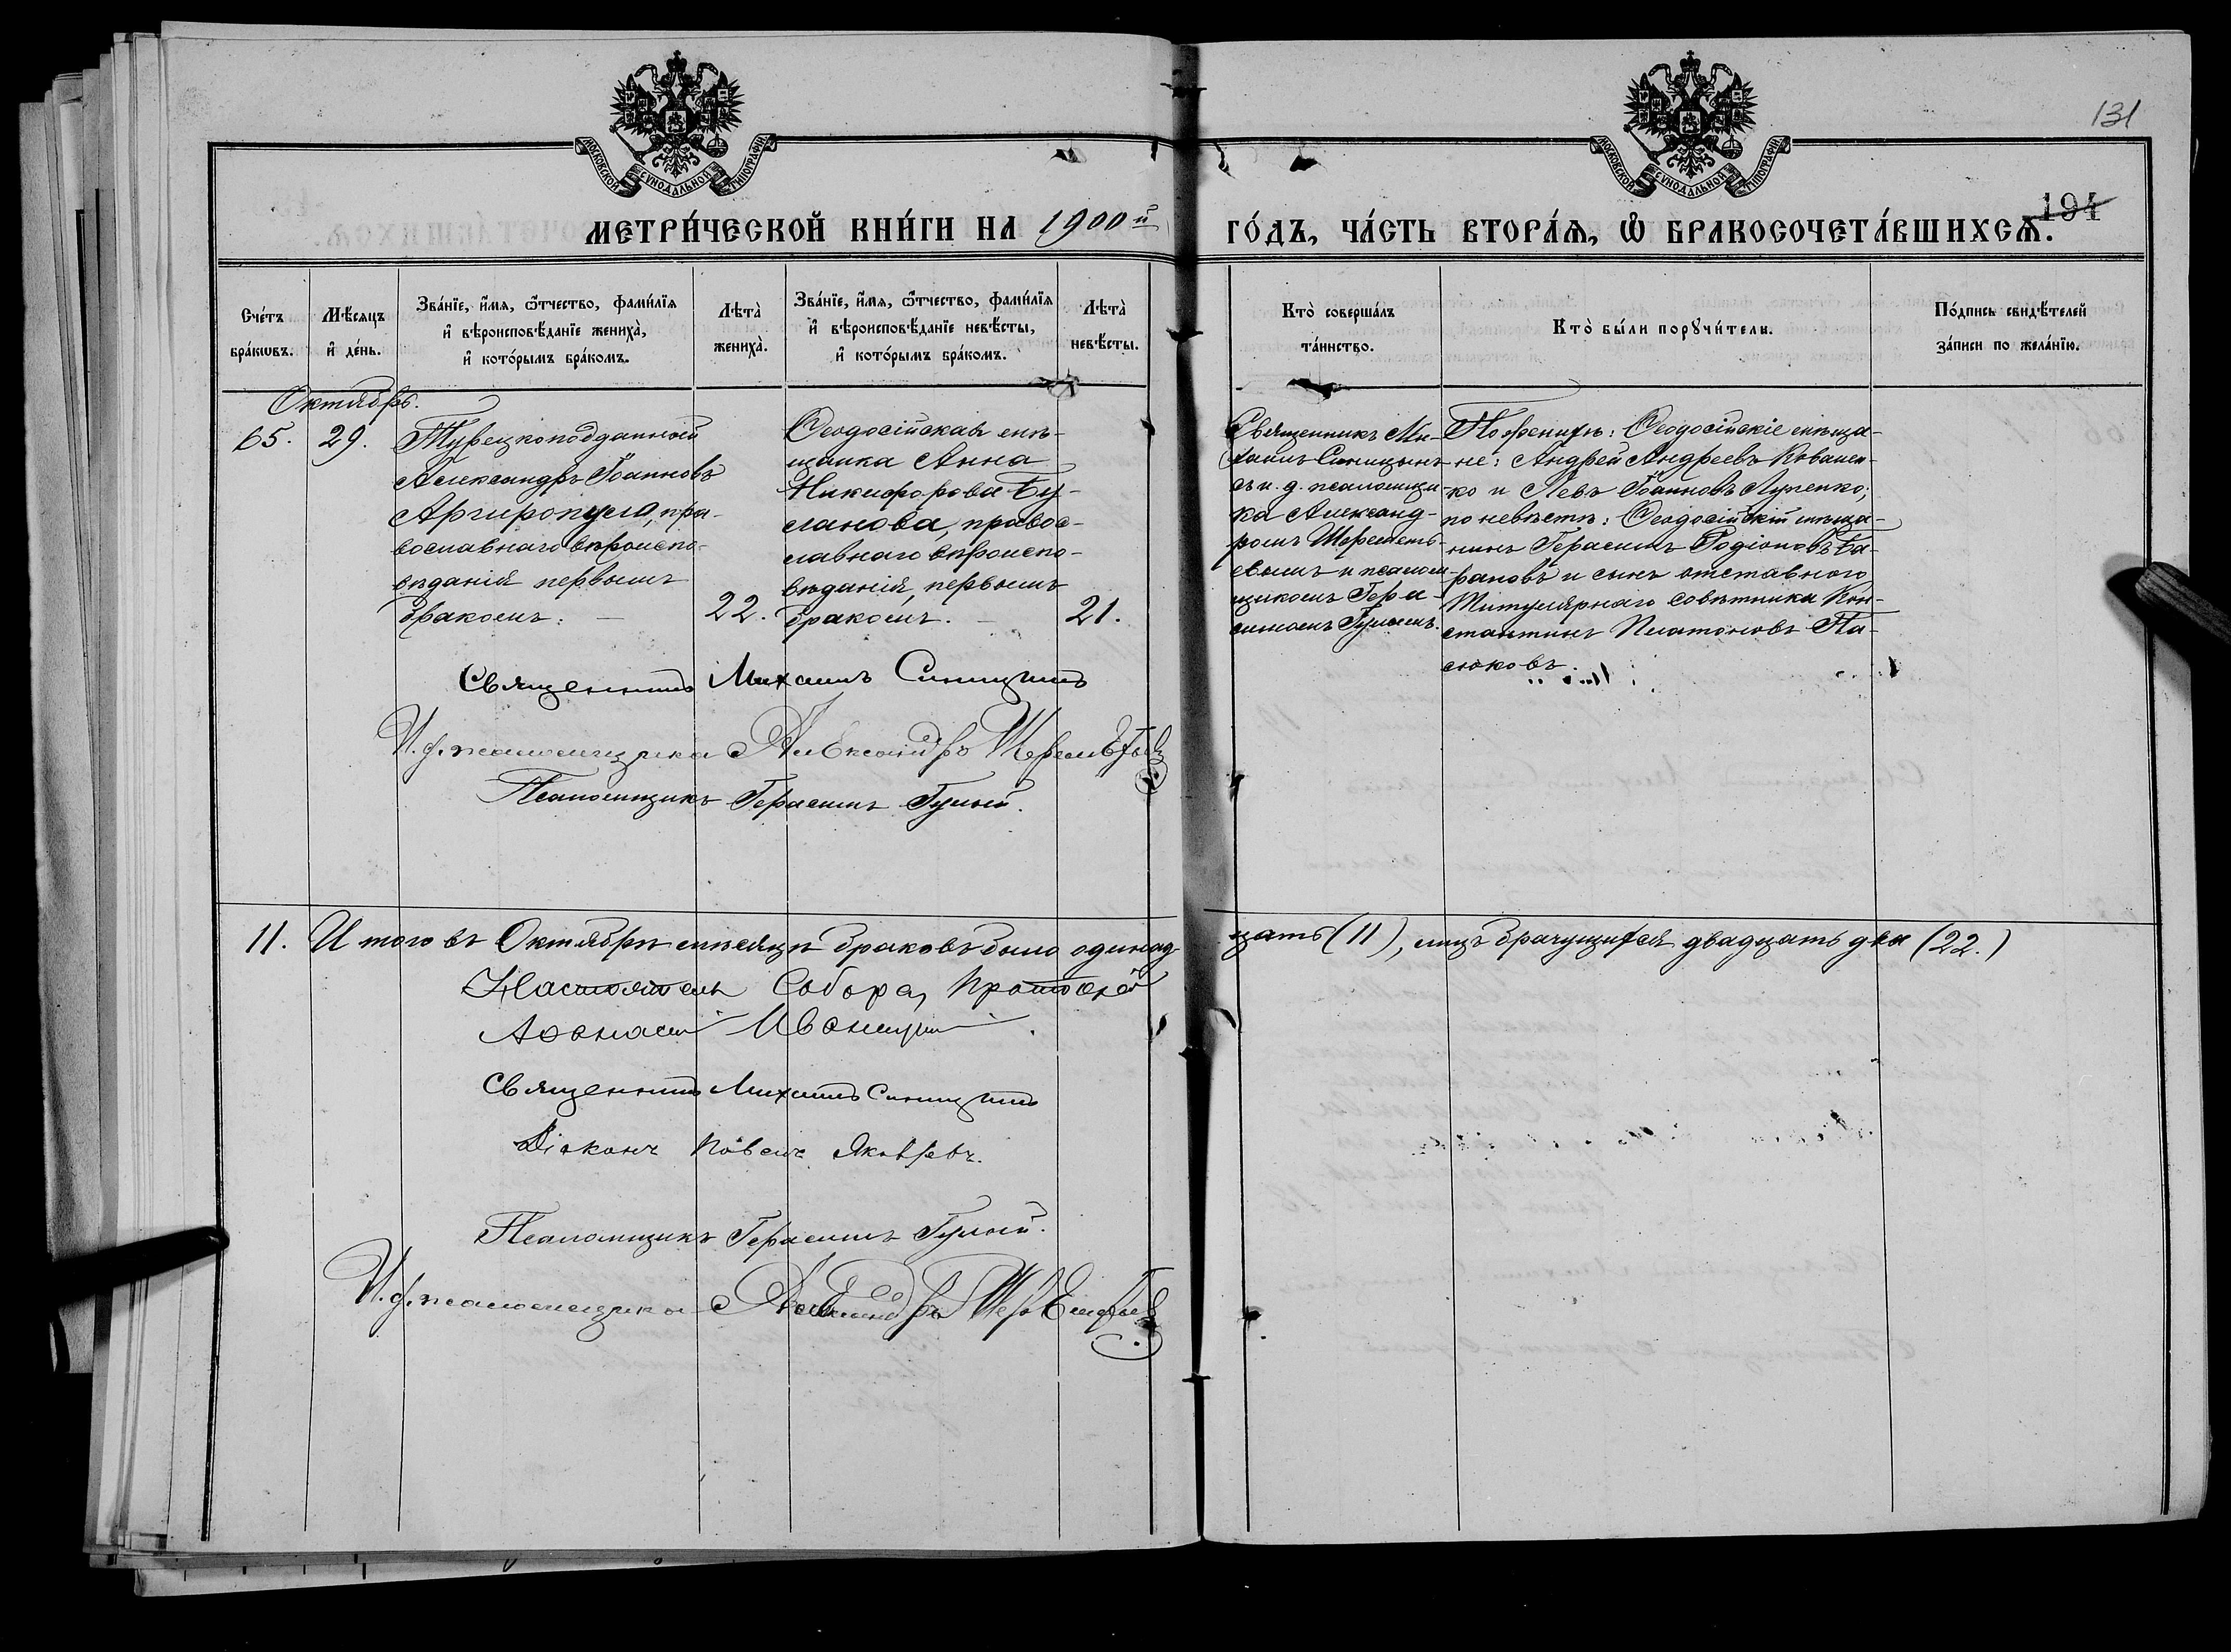 131
194
МОСКОВСКОЙ СУНОДАЛЬНОЙ ТИПОГРАФІИ
МОСКОВСКОЙ СУНОДАЛЬНОЙ ТИПОГРАФІИ
МЕТРИ́ЧЕСКОЙ КНИ́ГИ НА 1900й ГО́ДЪ, ЧА́СТЬ ВТОРА́Ѧ, Ѽ БРАКОСОЧЕТА́ВШИХСѦ.
Сче́тъ бра́кѡвъ.
Мѣ́сяцъ и҆ де́нь.
Зва́нїе, и҆́мѧ, ѻ҆́тчество, фами́лїѧ
и҆ вѣроисповѣ́данїе жениха̀,
и҆ кото́рымъ бра́комъ.
Лѣта̀ жениха̀.
Зва́нїе, и҆́мѧ, ѻ҆́тчество, фами́лїѧ
и҆ вѣроисповѣ́данїе невѣ́сты,
и҆ кото́рымъ бра́комъ.
Лѣта̀ невѣ́сты.
Кто̀ соверша́лъ
та́инство.
Кто̀ бы́ли порꙋчи́тели.
По́дпись свидѣ́телей
за́писи по жела́нїю.
Октябрь.
65.
29.
Турецкоподданный
Александръ Іоанновъ
Аргиропуло, пра-
вославнаго вѣроиспо-
вѣданія первымъ
бракомъ.
22.
Ѳеодосійская мѣ-
щанка Анна
Никифорова Бу-
ланова, правос-
лавнаго вѣроиспо-
вѣданія, первымъ
бракомъ.
21.
Священникъ Ми-
хаилъ Синицынъ
съ и. д. псаломщи-
ка Александ-
ромъ Шереметь-
евымъ и псалом-
щикомъ Гера-
симомъ Гулымъ.
По женихѣ: Ѳеодосійскіе мѣща-
не: Андрей Андреевъ Иваней-
ко и Левъ Іоанновъ Лупенко;
по невѣстѣ: Ѳеодосійскій мѣща-
нинъ Герасимъ Родіоновъ Ба-
рановъ и сынъ отставного
Титулярнаго совѣтника Кон-
стантинъ Платоновъ Па-
сюковъ.
Священникъ Михаилъ Синицынъ
И. д. псаломщика Александръ Шереметьев
Псаломщикъ Герасимъ Гулый.
11. И того въ Октябрѣ мѣсяцѣ браковъ было одинад-
цать (11), лицъ брачущихся двадцать два (22.)
Настоятель Собора, Протоіерей
Аѳанасій
Священникъ Михаилъ Синицынъ
Діаконъ Павелъ Яковлевъ.
Псаломщикъ Герасимъ Гулый.
И. д. псаломщика Александръ Шереметьев